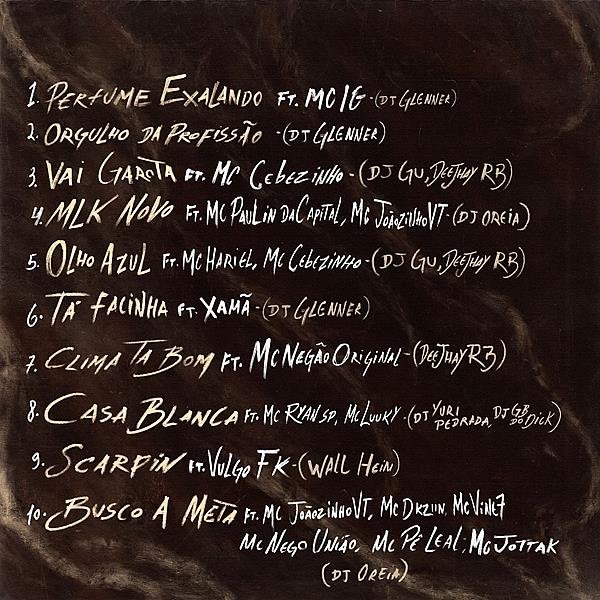 1. PERFUME EXALANDO FT. MC IG - (DJ GLENNER)
2. ORGULHO DA PROFISSÃO - (DJ GLENNER)
3. VAI GAROTA FT. MC CEBEZINHO - (DJ GU, DEEJHAY RB)
4. MLK NOVO FT. MC PAULIN DA CAPITAL, MC JOÃOZINHO VT - (DJ OREIA)
5. OLHO AZUL FT. MC HARIEL, MC CEBEZINHO - (DJ GU, DEEJHAY RB)
6. TÁ FACINHA FT. XAMÃ - (DJ GLENNER)
7. CLIMA TA BOM FT. MC NEGÃO ORIGINAL - (DEEJHAY RB)
8. CASA BLANCA FT. MC RYAN SP, MC LUUKY - (DJ YURI PEDRADA, DJ GB DO DICK)
9. SCARPIN FT. VULGO FK - (WALL HEIN)
10. BUSCO A META FT. MC JOÃOZINHO VT, MC DKZIIN, MC VINE7
MC NEGO UNIÃO, MC PÊ LEAL, MC JOTTAK
(DJ OREIA)